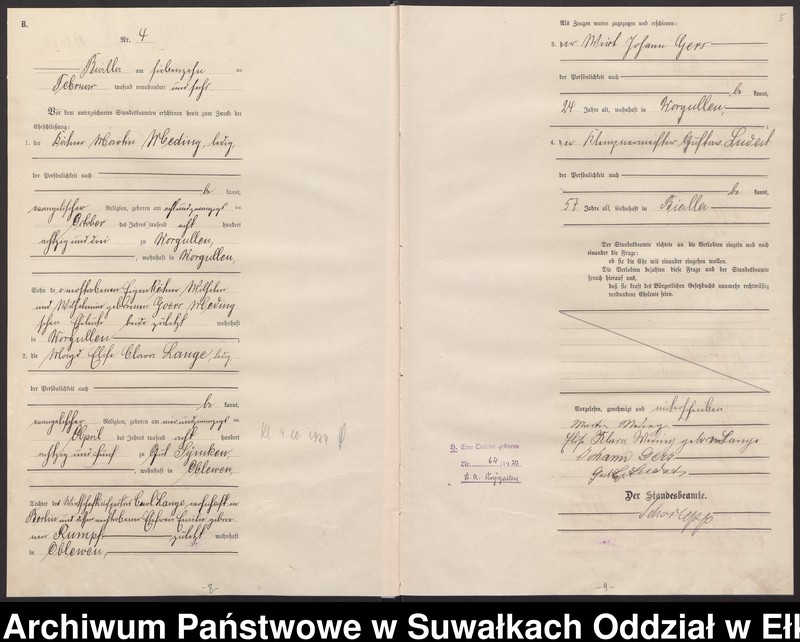 B.
Nr. 4
Bialla am siebenzehn ten
Februar tausend neunhundert und sechs
Vor dem unterzeichneten Standesbeamten erschienen heute zum Zwecke der
Eheschließung:
1. der Kätner Martin Meding, ledig
der Persönlichkeit nach
be kannt,
evangelischer Religion, geboren am achtundzwanzigsten
October des Jahres tausend acht hundert
achtzig und drei zu Worgullen,
, wohnhaft in Worgullen,
Sohn der verstorbenen Kätner Wilhelm
und Wilhelmine geborenen Meding
schen Eheleute beide zuletzt wohnhaft
in Worgullen
2. die Magd Elise Clara Lange, ledig
der Persönlichkeit nach
be kannt,
evangelischer Religion, geboren am
April des Jahres tausend acht hundert
achtzig und fünf zu Gut Symken
, wohnhaft in Oblewen,
Tochter des Carl Lange, wohnhaft in
Berlin und seiner verstorbenen Ehefrau Emilie gebore
nen Rumpf zuletzt wohnhaft
in Oblewen,
-8-
5
Als Zeugen waren zugezogen und erschienen:
3. der Wirt Johann Gers
der Persönlichkeit nach
be kannt,
24 Jahre alt, wohnhaft in Worgullen,
4. der Klempnermeister Gustav Ludat
der Persönlichkeit nach
be kannt,
57 Jahre alt, wohnhaft in Bialla
Der Standesbeamte richtete an die Verlobten einzeln und nach
einander die Frage:
ob sie die Ehe mit einander eingehen wollen.
Die Verlobten bejahten diese Frage und der Standesbeamte
sprach hierauf aus,
daß sie kraft des Bürgerlichen Gesetzbuchs nunmehr rechtmäßig
verbundene Eheleute seien.
Vorgelesen, genehmigt und unterschrieben
Martin Meding
Klara Meding geborene Lange
Johann Gers
Ludat
Der Standesbeamte.
H. Eine Tochter geboren
Nr. 64/19
-9-
Archiwum Państwowe w Suwałkach Oddział w Eł